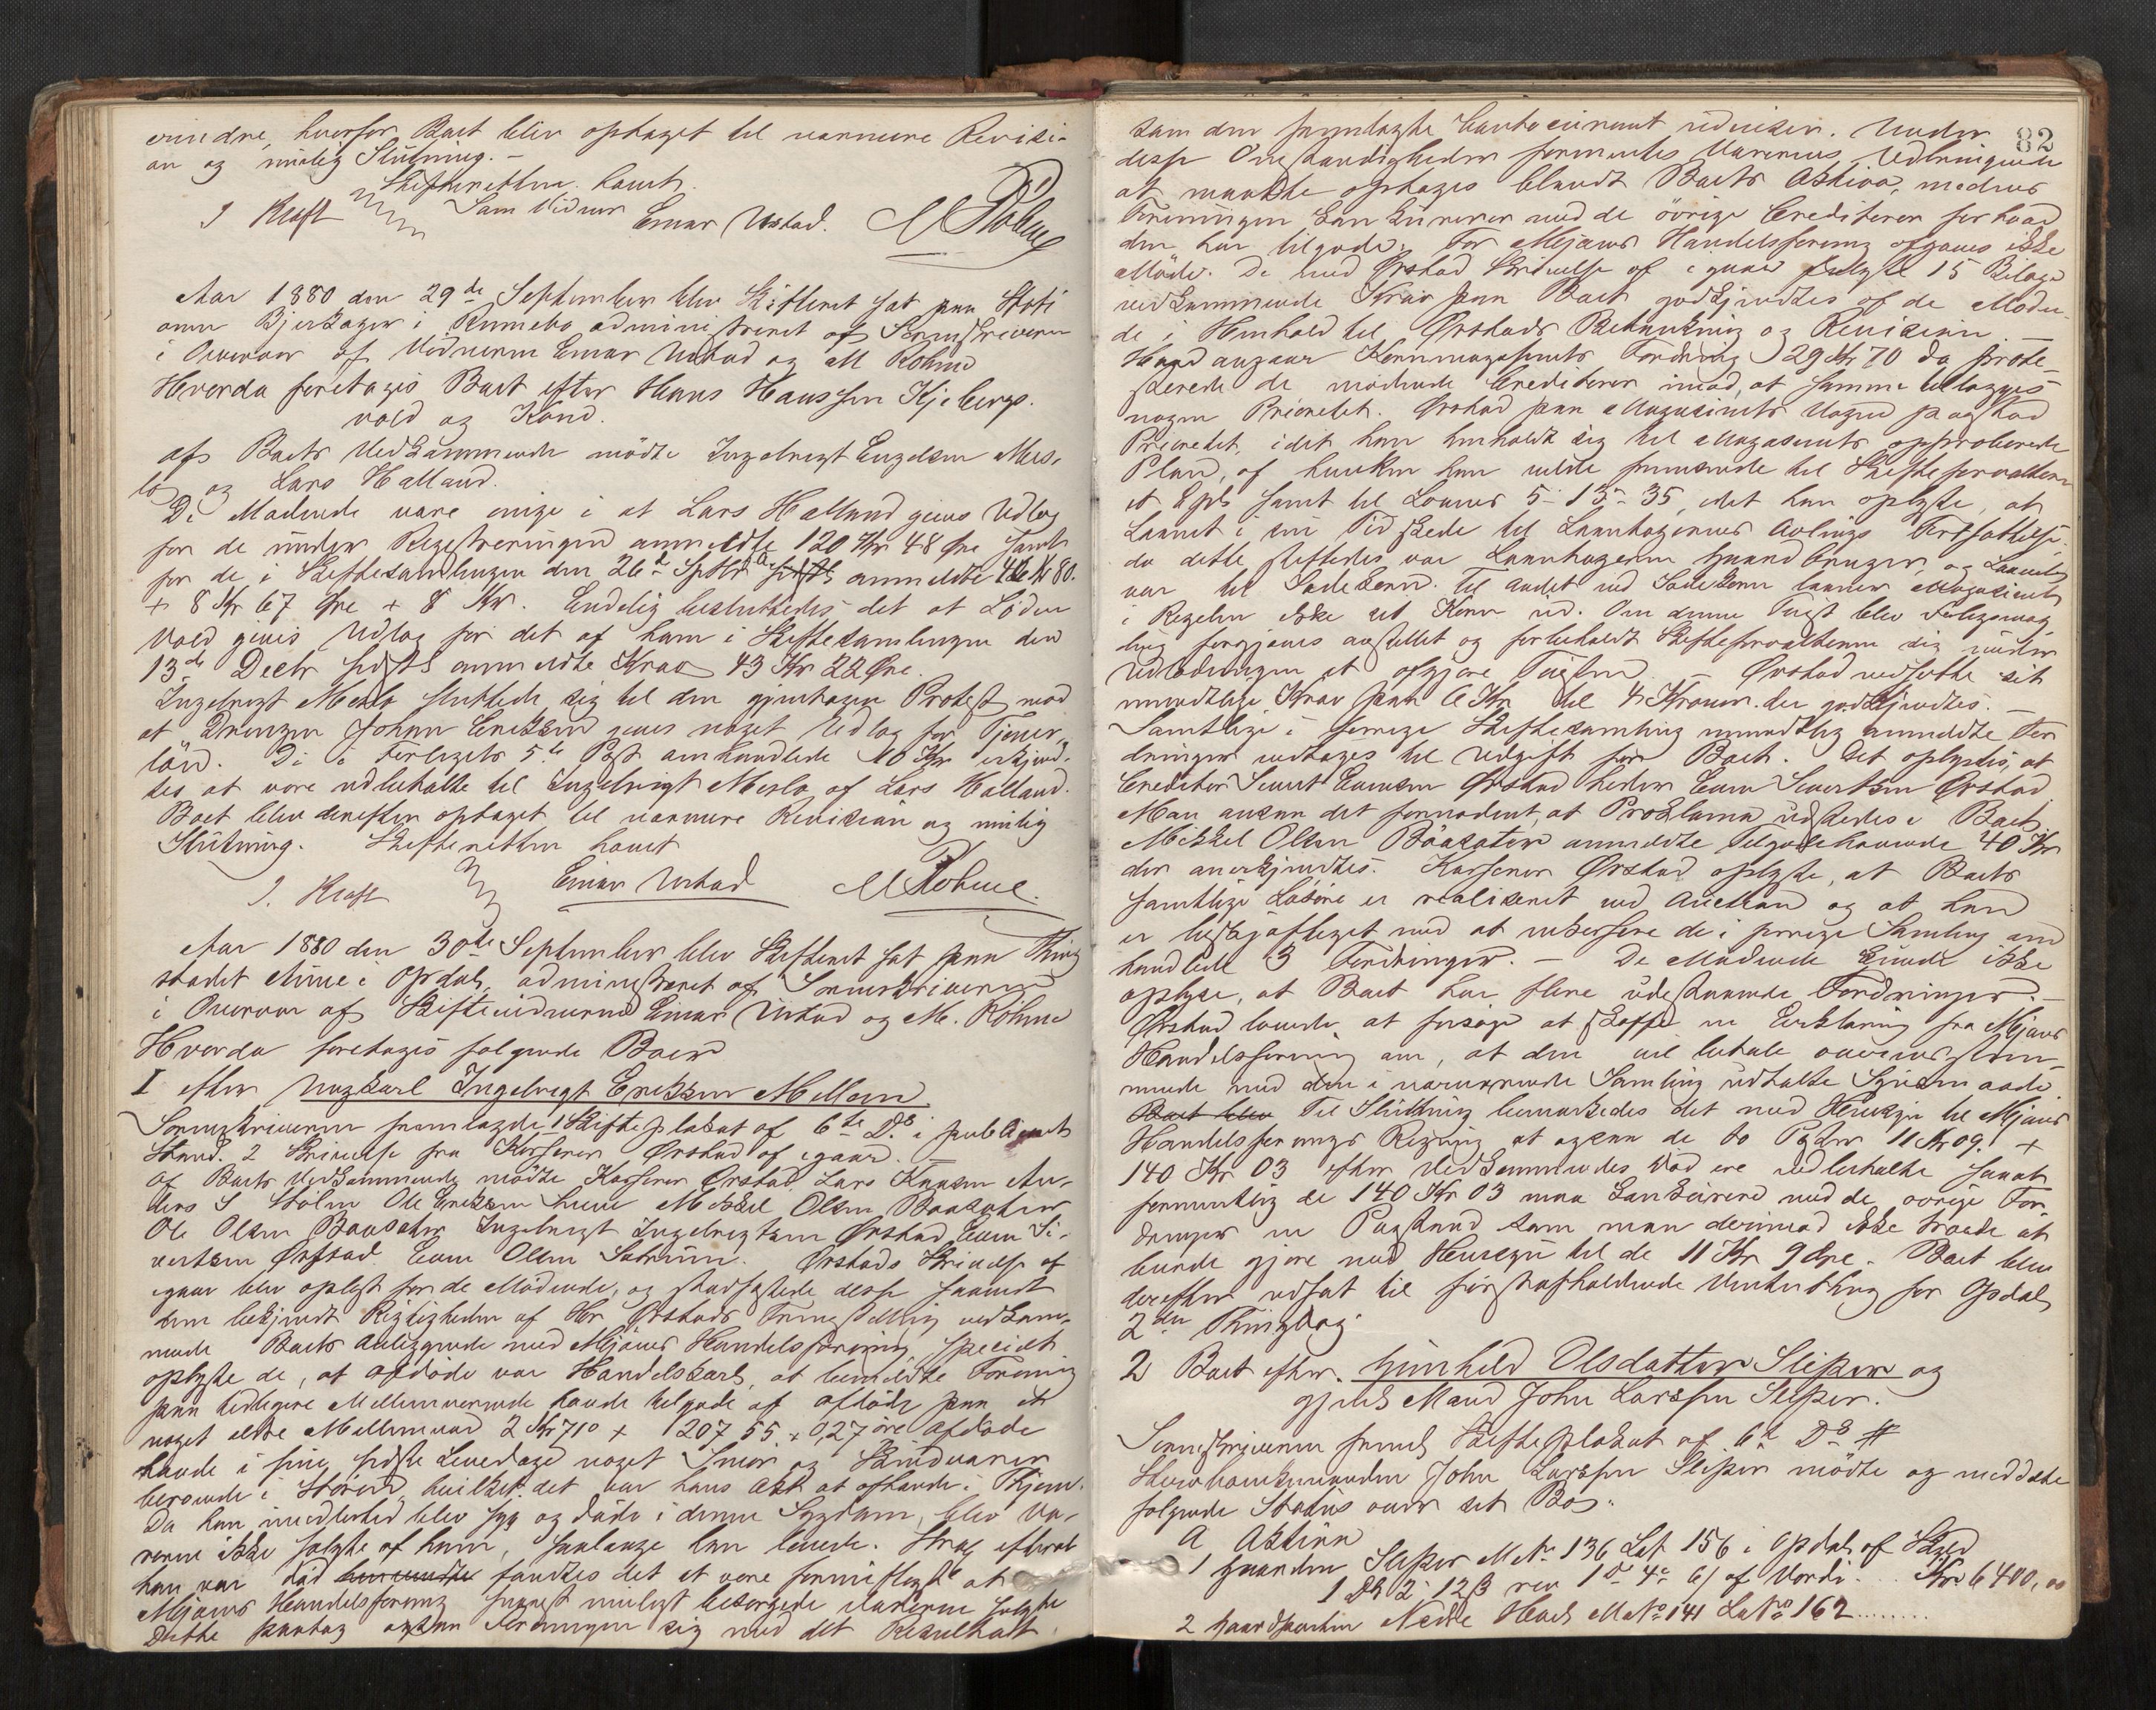 erindre, hvorfor Boet blev optaget til nærmere Revisi-
on og mulig Slutning. -
Skifteretten hævet.
Som Vidner
J Kraft Einar Ustad. M Rohme
Aar 1880 den 29de September blev Skifteret sat paa Stati
onen Bjerkager i Rennebo administreret af Sorenskriveren
i Overvær af Vidnerne Einar Ustad og M Rohme
Hvorda foretoges Boet efter Hans Hanssen Kjeberg-
vold og Kone.
Af Boets Vedkommende mødte Ingebrigt Engelsen Mers-
lo og Lars Halland.
De Mødende vare enige i at Lars Halland gives Udlæg
for de under Registreringen anmeldte 120 Kr 48 Øre samt
for de i Skiftesamlingen den 26de Septbr anmeldte 80.
+ 8 Kr 67 Øre + 8 Kr. Endelig besluttedes det at Løden
vold gives Udlæg for det af ham i Skiftesamlingen den
13de Decbr sidstl anmeldte Krav 43 Kr 22 Øre.
Ingebrigt Merslo sluttede sig til den gjentagen Protest mod
at Drengen Johan Eriksen gives noget Udlæg for Tjener-
løn. De i Forligets 5te Post omhandlede 10 Kr erkjend-
tes at være udbetalte til Ingebrigt Merslo af Lars Halland.
Boet blev derefter optaget til nærmere Revision og mulig
Slutning. Skifteretten hævet
J. Kraft Einar Ustad M Rohme.
Aar 1880 den 30de September blev Skifteret sat paa Thing
stedet Aune i Opdal, administreret af Sorenskriveren
i Overvær af Skiftevidnerne Einar Ustad og M. Rohme
Hvorda foretoges følgende Boer
I efter Ungkarl Ingebrigt Eriksen Mellem
Sorenskriveren fremlagde 1 Skifteplakat af 6te Ds i publiceret
Stand. 2 Skrivelse fra Kasserer Ørstad af igaar. -
Af Boets Vedkommende mødte Kasserer Ørstad, Lars Knusen An-
ders S Stølen Ole Eriksen Mikkel Olsen Baasater
Ole Olsen Baasater Ingebrigt Ingebrigtsen Ørstad Even Si-
vertsen Ørstad Even Olsen. Ørstads Skrivelse af
igaar blev oplæst for de Mødende, og stadfæstede disse saavidt
dem bekjendt Rigtigheden af Hr Ørstads Fremstilling vedkom-
mende Boets Anliggende med Mejaus Handelsforening, specielt
oplyste de, at Afdøde var Handelskarl, at bemeldte Forening
paa tidligere Mellemværende havde tilgode af Afdøde paa et
noget ældre Mellemvær 2 Kr 710 + 1207 55 + 0,27 øre Afdøde
havde i sine sidste Levedage noget Smør og Skindvarer
beroende i Støren, hvilket det var hans Agt at afhænde i Thjem.
Da han imidlertid blev syg og døde i denne Sygdom, blev Va-
rerne ikke solgte af ham, saalænge han levede. Strax efterat
han var død fandtes det at være fornuftigst at
Mejaus Handelsforening snarest muligst besørgede Varerne solgte
Dette paatog ogsaa Foreningen sig med det Resultat
82
som den fremlagte Conto courant udviser. Under
disse Omstændigheder formentes Varernes Udbringende
at maatte optages blandt Boets Aktiva, medens
Foreningen konkurrerer med de øvrige Creditorer for hvad
den har tilgode. For Mejaus Handelsforening afgaves ikke
Møde. De med Ørstad Skrivelse af igaar fulgte 15 Bilage
vedkommende Krav paa Boet godkjendtes af de Møden-
de i Henhold til Ørstads Betænkning og Revision. -
Hvad angaar Kornmagasinets Fordring 29 Kr 70 da prote-
sterede de mødende Creditorer imod, at samme tillægges
nogen Prioritet. Ørstad paa Magasinets Vegne paastod
Prioritet, idet han henholdt sig til Magasinets approberede
Plan, af hvilken han vilde fremsende til Skifteforvalteren
et Expl samt til Lovens 5-13-35, idet han oplyste, at
Laanet i sin Tid skede til Laantagerens Avlings Fortsættelse.
da dette stiftedes var Laantageren Gaardbruger, og Laanet
var til Sædekorn. Til andet end Sædekorn laaner Magasinet
i Regelen ikke sit Korn ud. Om denne Tvist blev Forligsmæg-
ling forgjæves anstillet og forbeholdt Skifteforvalteren sig under
Udlodningen at afgjøre Tvisten. - Ørstad nedsatte sit
mundtlige Krav paa 6 Kr til 4 Kroner. der godkjendtes. -
Samtlige i forrige Skiftesamling mundtlig anmeldte For
dringer vedtages til Udgift for Boet. Det oplystes, at
Creditor Sivert Evensen Ørstad heder Even Sivertsen Ørstad
Man ansaa det fornødent, at Proklama udstedes i Boet.
Mikkel Olsen Baasater anmeldte Tilgodehavende 40 Kr
der anerkjendtes. Kasserer Ørstad oplyste, at Boets
samtlige Løsøre er realiseret ved Auction og at han
er beskjæftiget med at inkassere de i forrige Samling om
handlede 3 Fordringer. - De Mødende kunde ikke
oplyse, at Boet har flere udestaaende Fordringer. -
Ørstad lovede at forsøge at skaffe en Erklæring fra Mejaus
Handelsforening om, at den vil betale overensstem-
mende med den i nærværende Samling udtalte Synsmaade
Boet blev Til Slutning bemærkedes det med Hensyn til Mejaus
Handelsforenings Regning at ogsaa de to Poster 11 Kr 09. +
140 Kr 03 efter Vedkommendes Død ere udbetalte saaat
formentlig de 140 Kr 03 maa konkurrere med de øvrige For
dringer en Paastand som man derimod ikke troede at
burde gjøre med Hensyn til de 11 Kr 9 Øre. Boet blev
derefter udsat til førstafholdende Vinterthing for Opdal
2den Thingdag
2 Boet efter. Gunhild Olsdatter Slipper og
gjenl Mand John Larssen Slipper.
Sorenskriveren freml Skifteplakat af 6te Ds #
Enkemanden John Larssen Slipper mødte og meddelte
følgende Status over sit Bo:
A Aktiva
1 Gaarden Slipper M No 136 Løb 156 i Opdal af Skyld
1 Dl 2 - 12 β rev 1 D 4 - 6/ af Værdi... Kr 6400,00
2 Gaardparten Nedre Hoel M No 141 L No 162........